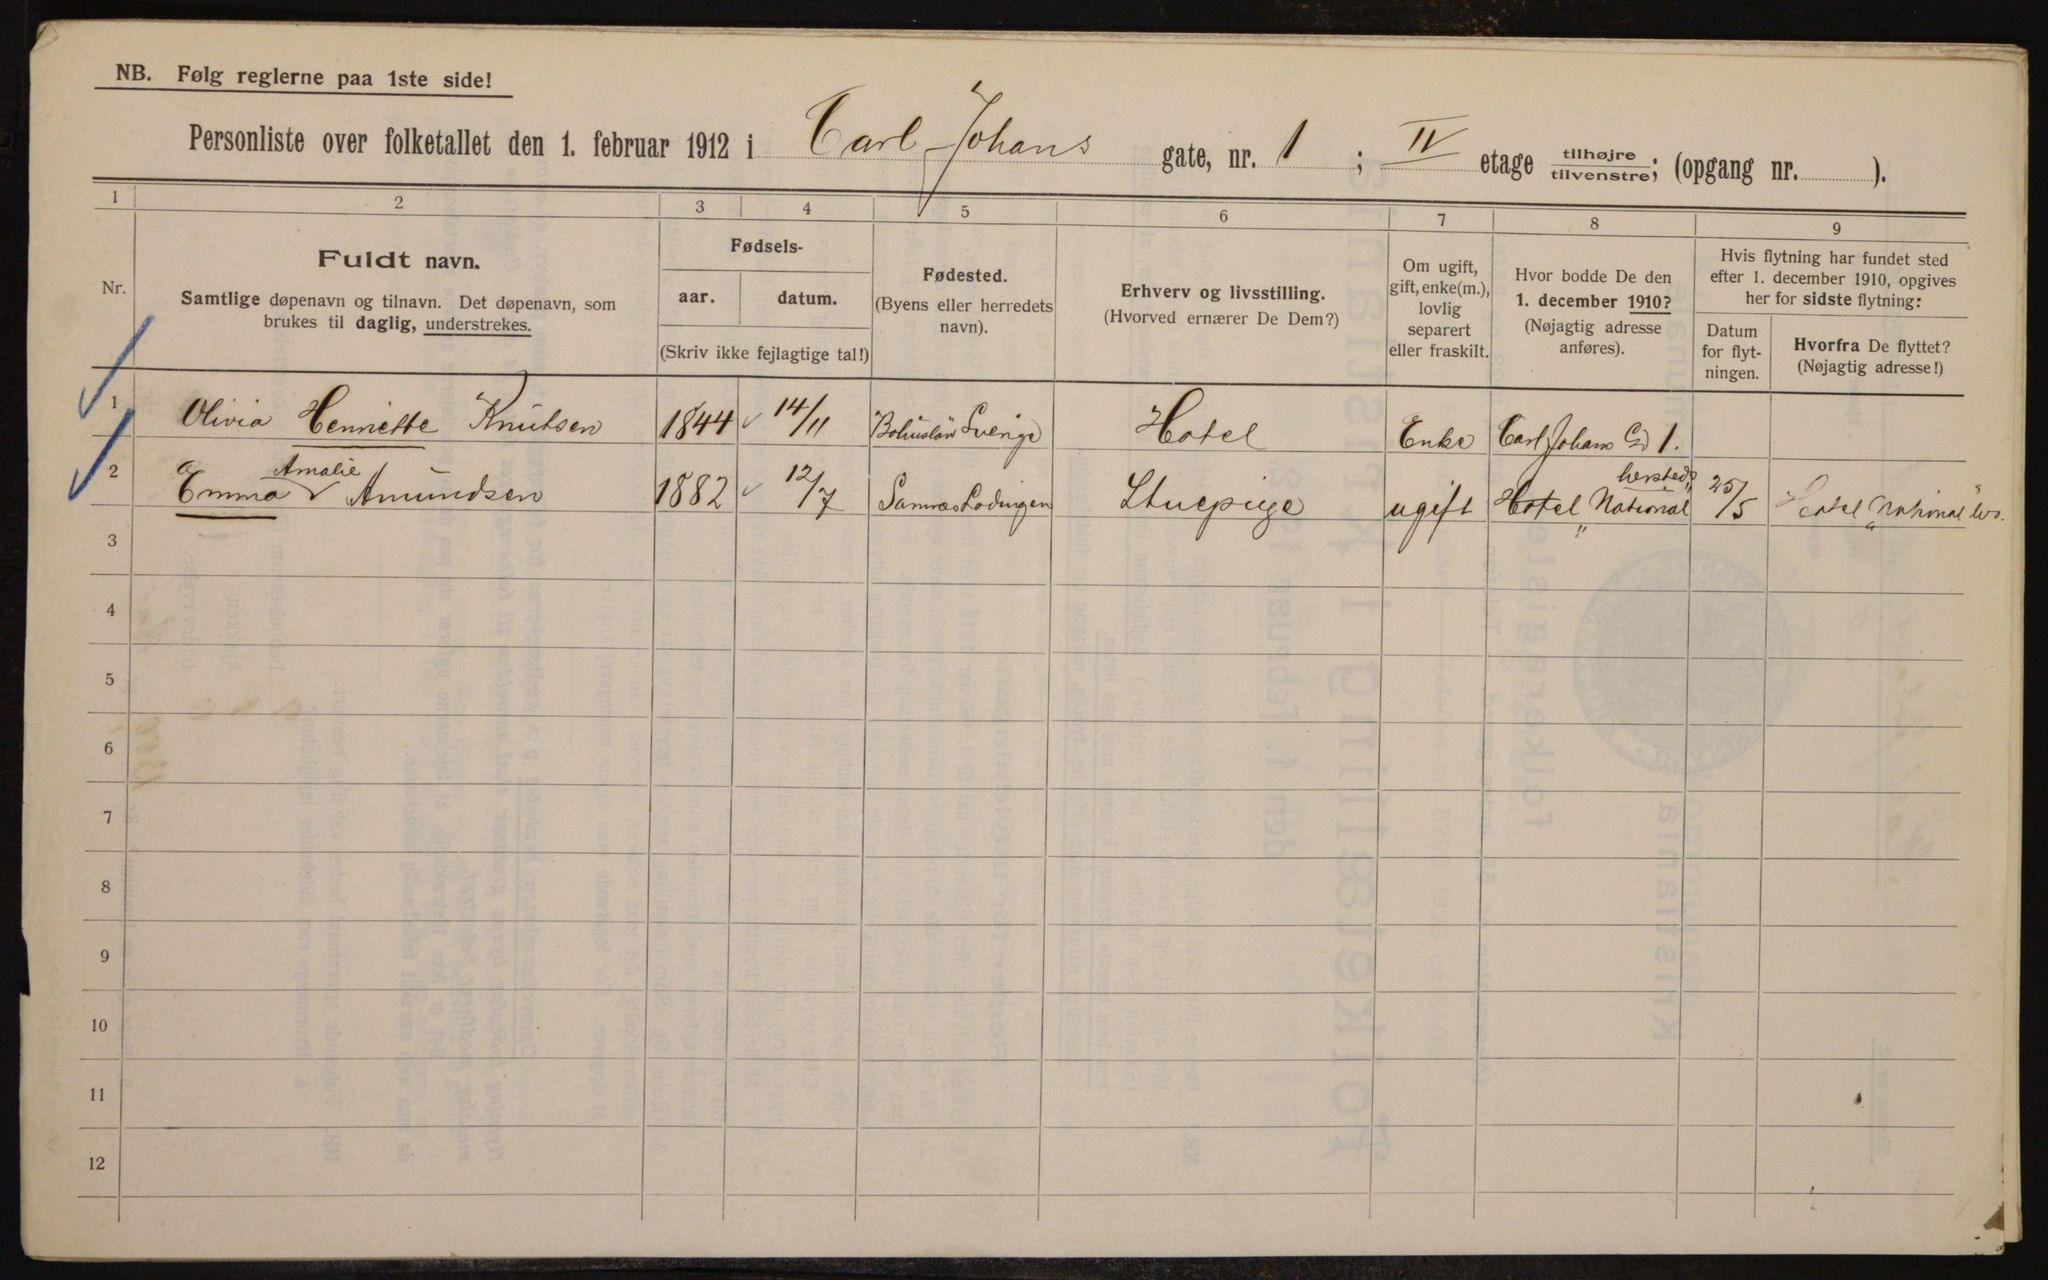 NB. Følg reglerne paa 1ste side!
Personliste over folketallet den 1. februar 1912 i Carl Johans gate, nr. 1 ; IV etage tilhøjre tilvenstre; (opgang nr. ).
1 2 3 4 5 6 7 8 9
Nr.
Fuldt navn.
Samtlige døpenavn og tilnavn. Det døpenavn, som
brukes til daglig, understrekes.
Fødsels-
aar. datum.
(Skriv ikke fejlagtige tal!)
Fødested.
(Byens eller herredets
navn).
Erhverv og livsstilling.
(Hvorved ernærer De Dem?)
Om ugift,
gift, enke(m.),
lovlig
separert
eller fraskilt.
Hvor bodde De den
1. december 1910?
(Nøjagtig adresse
anføres).
Hvis flytning har fundet sted
efter 1. december 1910, opgives
her for sidste flytning:
Datum
for flyt-
ningen.
Hvorfra De flyttet?
(Nøjagtig adresse!)
1 Olivia Henriette Knutsen 1844 14/11 Bohuslän Sverige Hotel Enke Carl Johans Gd 1.
2 Emma Amalie Amundsen 1882 12/7 Lodingen Stuepige ugift Hotel "National" hersteds 25/5 Hotel "National"
3
4
5
6
7
8
9
10
11
12